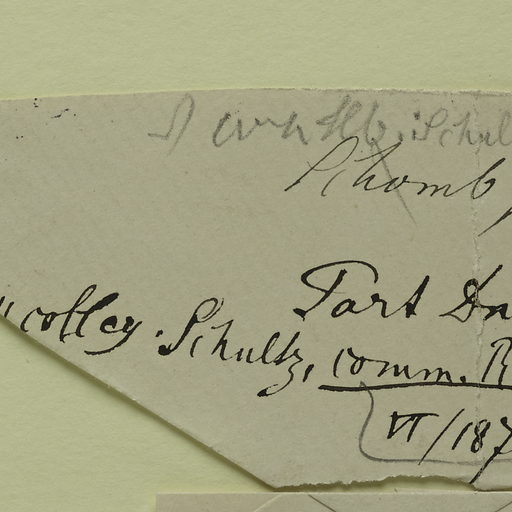 Hb. Schul
Schomb
Port Da
colleg. Schultz, comm. R
VI/187